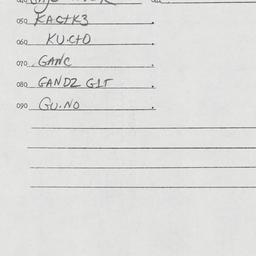 050 KACTK3
060 KU.CTO
070 GANC
080 GANDZ GIT
090 GU.NO